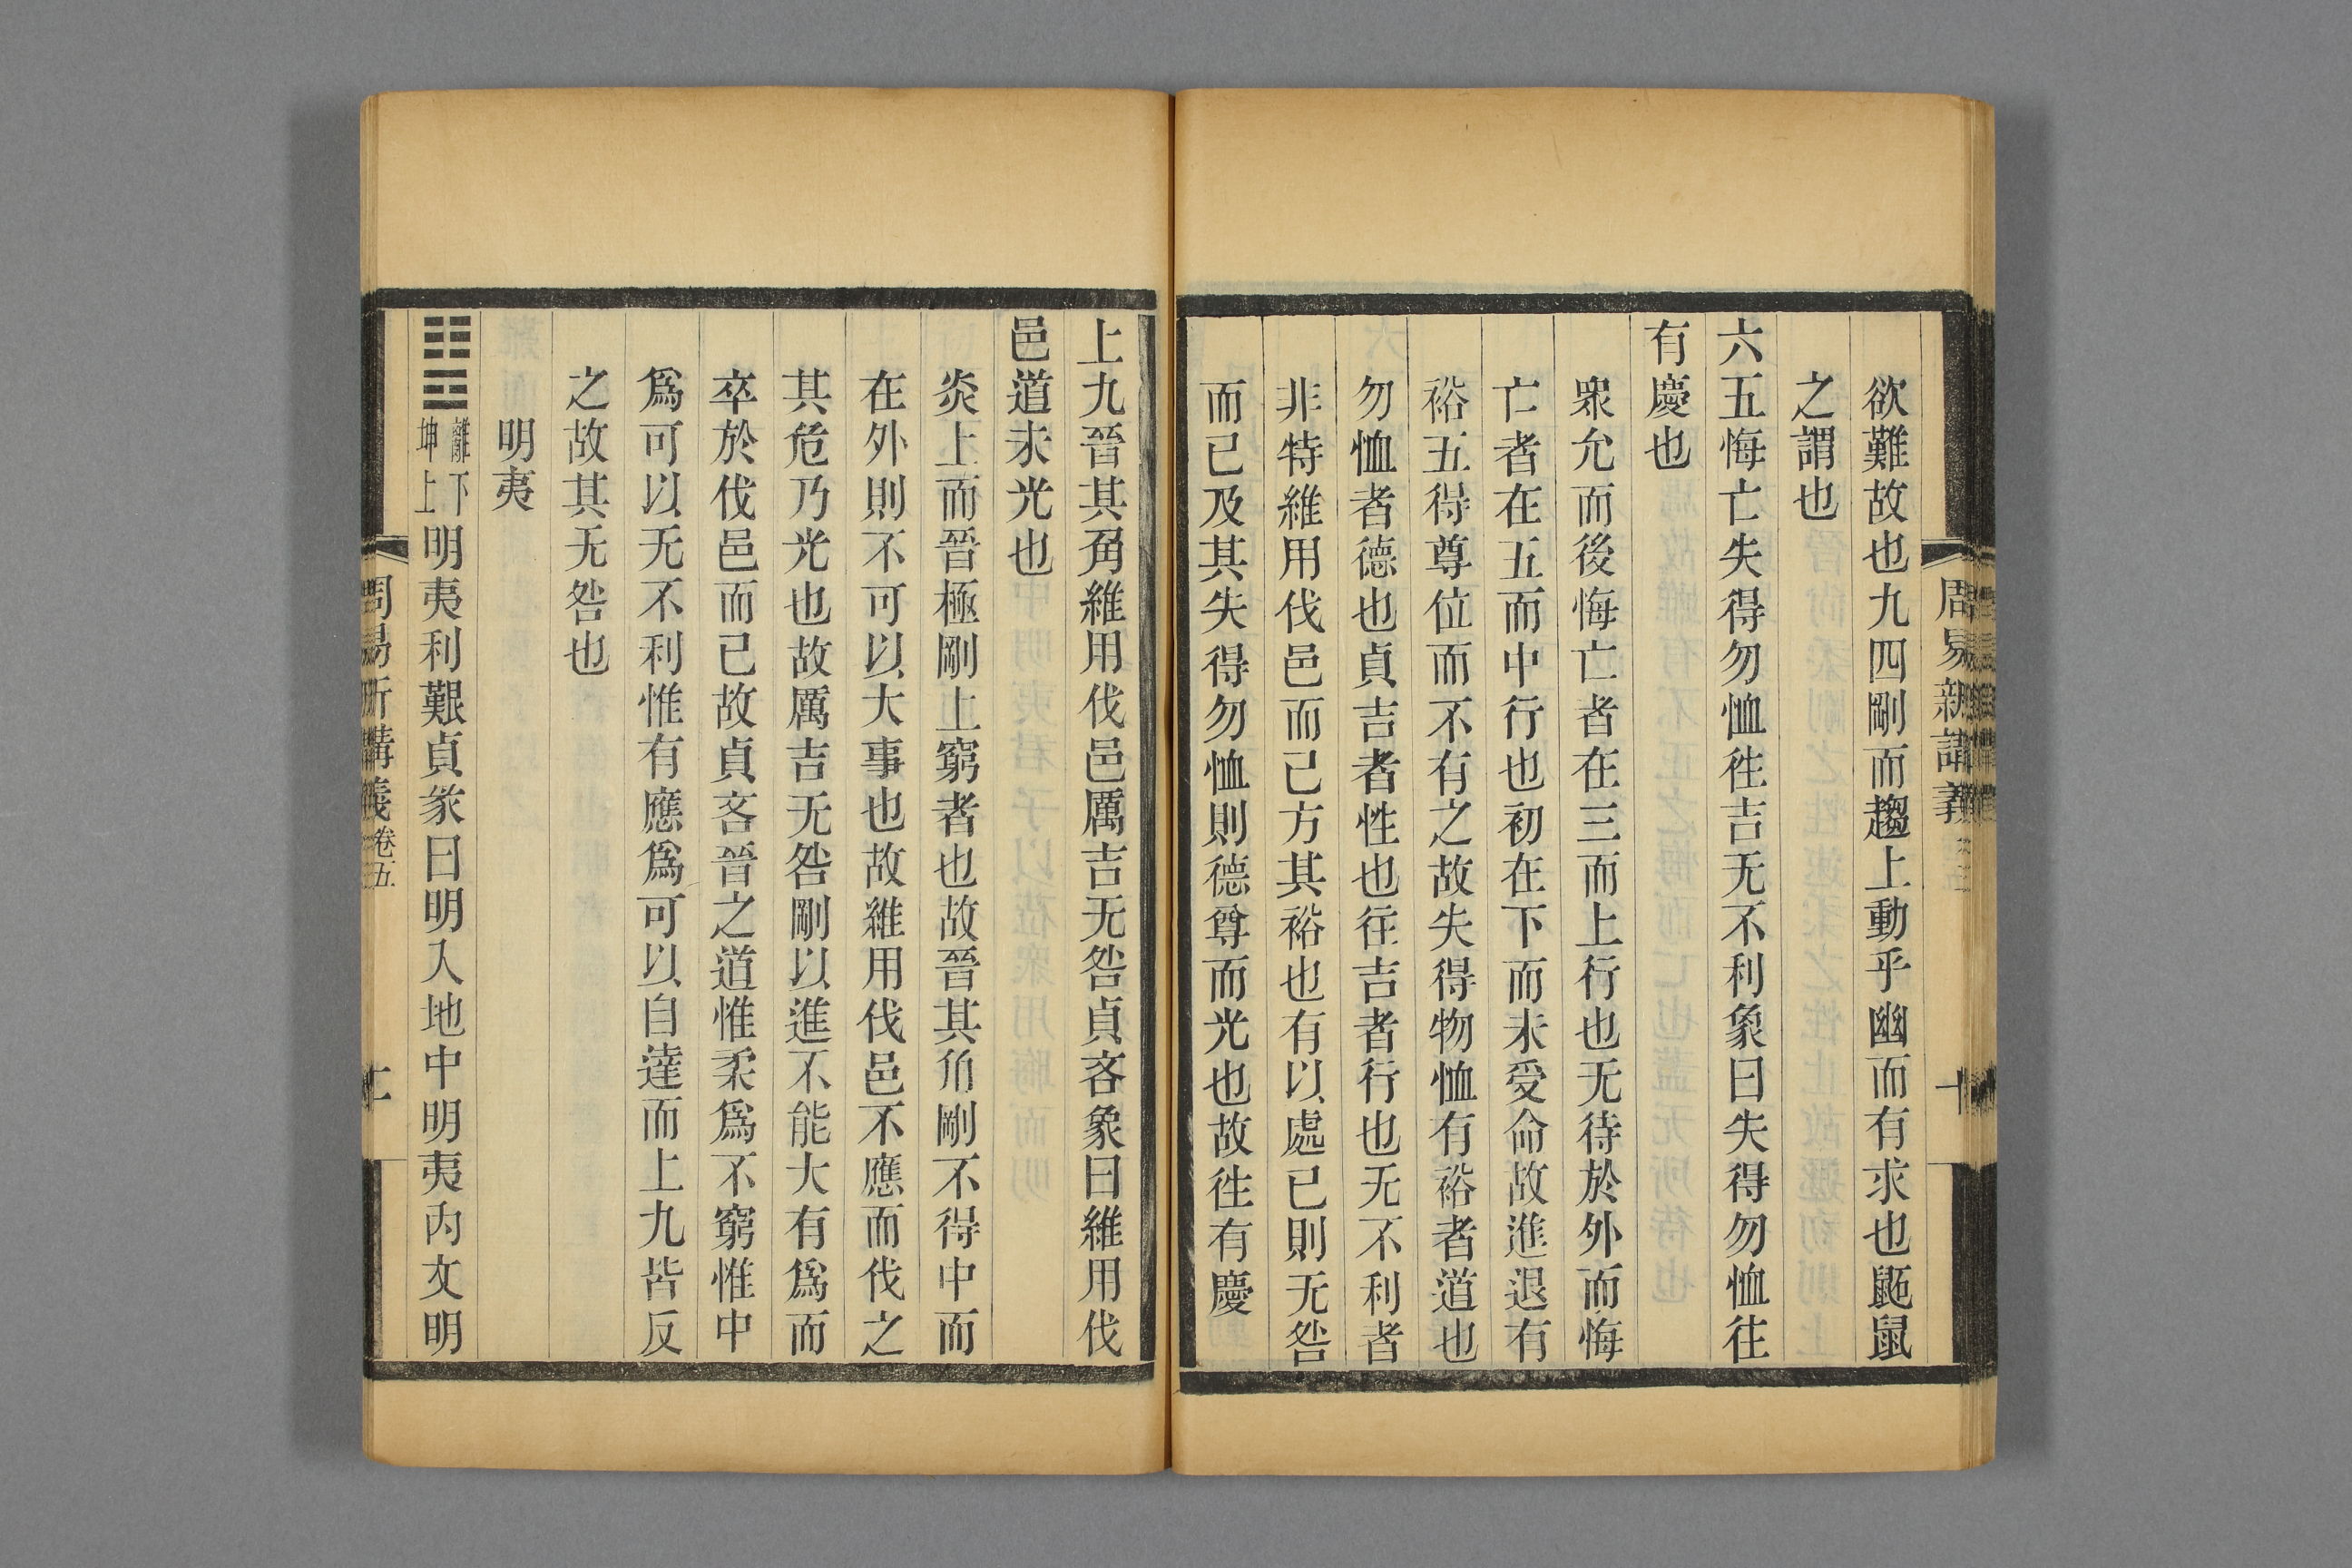 周易新講義
十
欲難故也九四剛而趨上動乎幽而有求也鼫鼠
之謂也
六五悔亡失得勿恤往吉无不利象曰失得勿恤往
有慶也
衆允而後悔亡者在三而上行也无待於外而悔
亡者在五而中行也初在下而未受命故進退有
裕五得尊位而不有之故失得物恤有裕者道也
勿恤者德也貞吉者性也往吉者行也无不利者
非特維用伐邑而已方其裕也有以處已則无咎
而已及其失得勿恤則德尊而光也故往有慶
上九晉其角維用伐邑厲吉无咎貞吝象曰維用伐
邑道未光也
炎上而晉極剛上窮者也故晉其角剛不得中而
在外則不可以大事也故維用伐邑不應而伐之
其危乃光也故厲吉无咎剛以進不能大有爲而
卒於伐邑而已故貞吝晉之道惟柔爲不窮惟中
爲可以无不利惟有應爲可以自達而上九皆反
之故其无咎也
明夷
離下
坤上
明夷利艱貞彖曰明入地中明夷內文明
周易新講義 卷五